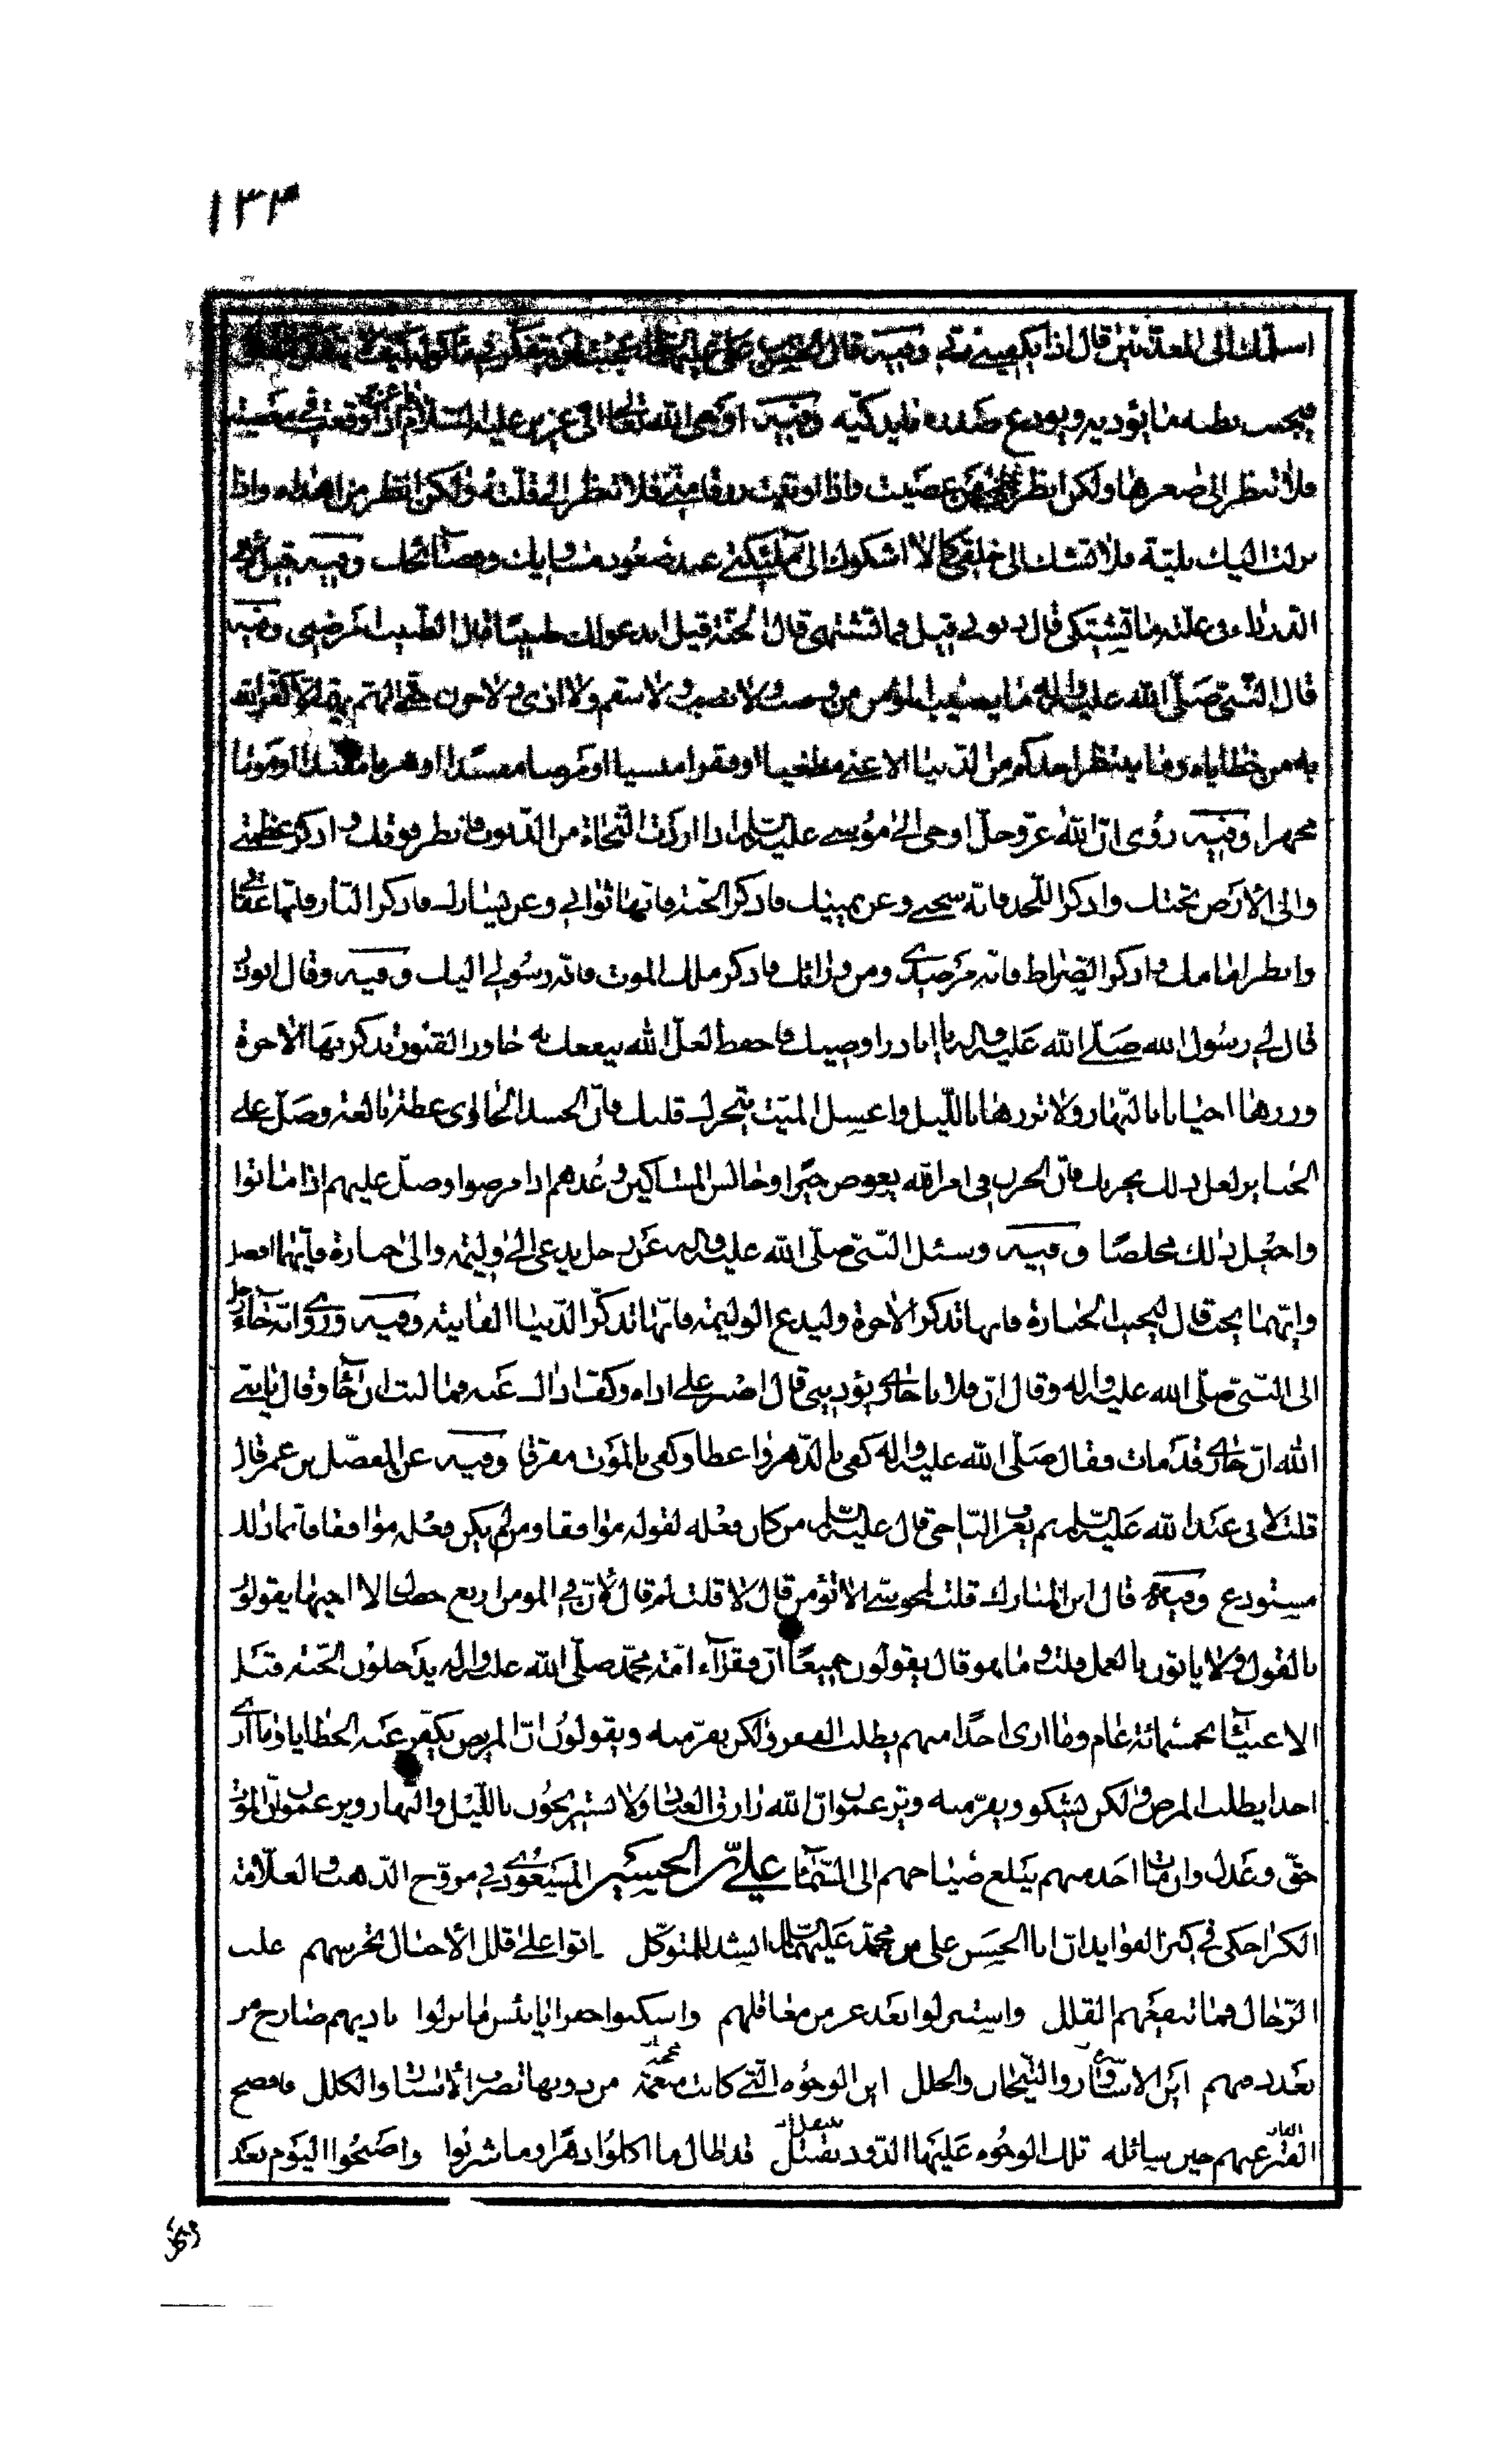 ١٣٣
اسلمك الى المعذبين قال اذا يكفيني منه وفيه قال الحسن بن علي عليهما السلام عجبت لمن يتفكر في ماكوله كيف لا يتفكر
فيجنب بطنه ما يؤذيه ويودع صدره ما يرديه وفيه اوحى الله تعالى الى عزير عليه السلام اذا وقعت في معصية
فلا تنظر الى صغرها ولكن انظر من عصيت واذا اوتيت رزقا مني فلا تنظر الى قلته ولكن انظر من اهداه واذا
نزلت اليك بلية فلا تشك الى خلقي كما لا اشكوك الى ملئكتي عند صعود مساويك وفضائحك وفيه قيل لابي
الدرداء في علته ما تشتكي قال ذنوبي قيل فما تشتهي قال الجنة قيل اندعو لك طبيبا قال الطبيب امرضني وفيه
قال النبي صلى الله عليه واله ما يصيب المؤمن من وصب ولا نصب ولا سقم ولا اذى ولا حزن حتى الهم يهمه الا كفر الله
به من خطاياه وما ينتظر احدكم من الدنيا الا غنى مطغيا او فقرا منسيا او مرضا مفسدا او هرما مفندا او موتا
مجهزا وفيه روى ان الله عز وجل اوحى الى موسى عليه السلام اذا اردت النجاة من الذنوب فانظر فوقك واذكر عظمتي
والى الارض تحتك واذكر اللحد فانه سجني وعن يمينك فاذكر الجنة فانها ثوابي وعن يسارك فاذكر النار فانها عقابي
وانظر امامك واذكر الصراط فانه مرصدي ومن ورائك فاذكر ملك الموت فانه رسولي اليك وفيه وقال ابوذر
قال لي رسول الله صلى الله عليه واله يا اباذر اوصيك فاحفظ لعل الله ينفعك به جاور القبور تذكر بها الاخرة
وزرها احيانا بالنهار ولا تزرها بالليل واغسل الميت يتحرك قلبك فان الجسد الخاوي عظة بالغة وصل على
الجنايز لعل ذلك يحزنك فان الحزين في امر الله يعوض خيرا وجالس المساكين وعدهم اذا مرضوا وصل عليهم اذا ماتوا
واجعل ذلك مخلصا وفيه وسئل النبي صلى الله عليه واله عن رجل يدعى الى وليمة والى جنازة فايهما افضل
وايهما يجب قال يجيب الجنازة فانها تذكر الاخرة وليدع الوليمة فانها تذكر الدنيا الفانية وفيه وروى انه جاء رجل
الى النبي صلى الله عليه واله وقال ان فلانا جاري يؤذيني قال اصبر على اذاه وكف اذاك عنه فما لبث ان جاء وقال يا نبي
الله ان جاري قد مات فقال صلى الله عليه واله كفى بالدهر واعظا وكفى بالموت مفرقا وفيه عن المفضل بن عمر قال
قلت لابي عبد الله عليه السلام بم يعرف الناجي قال عليه السلام من كان فعله لقوله موافقا ومن لم يكن فعله موافقا فانما ذلك
مستودع وفيه قال ابن المبارك قلت لمجوسي الا تؤمن قال لا قلت لم قال لان في المومن اربع خصال لا احبها يقولون
بالقول ولا ياتون بالعمل قلت وما هو قال يقولون جميعا ان فقراء امة محمد صلى الله عليه واله يدخلون الجنة قبل
الاغنياء بخمسمائة عام وما ارى احدا منهم يطلب الفقر ولكن يفر منه ويقولون ان المريض يكفر عنه الخطايا وما ارى
احدا يطلب المرض ولكن يشكو ويفر منه ويزعمون ان الله رازق العباد ولا يستريحون بالليل والنهار ويزعمون ان الموت
حق وعدل وان مات احد منهم يبلغ صياحهم الى السماء علي بن الحسين المسعودي في مروج الذهب والعلامة
الكراجكي في كنز الفوايد ان ابا الحسن علي بن محمد عليهما السلام انشد للمتوكل باتوا على قلل الاجبال تحرسهم غلب
الرجال فما تنفعهم القلل واستنزلوا بعد عز من معاقلهم واسكنوا حفرا يا بئس ما نزلوا ناديهم صارخ من
بعد دفنهم اين الاساور والتيجان والحلل اين الوجوه التي كانت منعمة من دونها تضرب الاستار والكلل فافصح
القبر عنهم حين سائله تلك الوجوه عليها الدود تقتتل قد طال ما اكلوا دهرا وما شربوا واصبحوا اليوم بعد